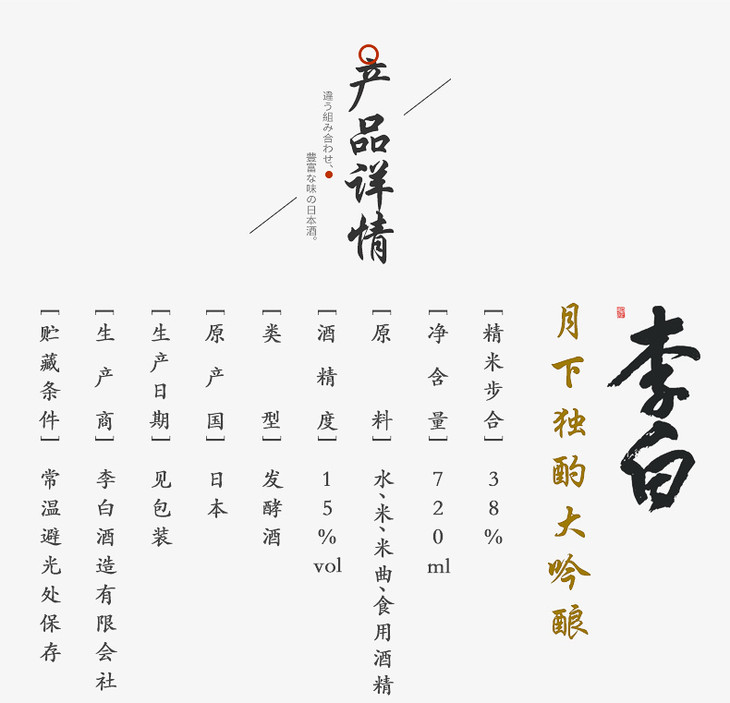 产品详情
違う組み合わせ、
豊富な味の日本酒。
李白
月下独酌大吟酿
[精米步合] 38%
[净含量] 720ml
[原料] 水、米、米曲、食用酒精
[酒精度] 15%vol
[类型] 发酵酒
[原产国] 日本
[生产日期] 见包装
[生产商] 李白酒造有限会社
[贮藏条件] 常温避光处保存